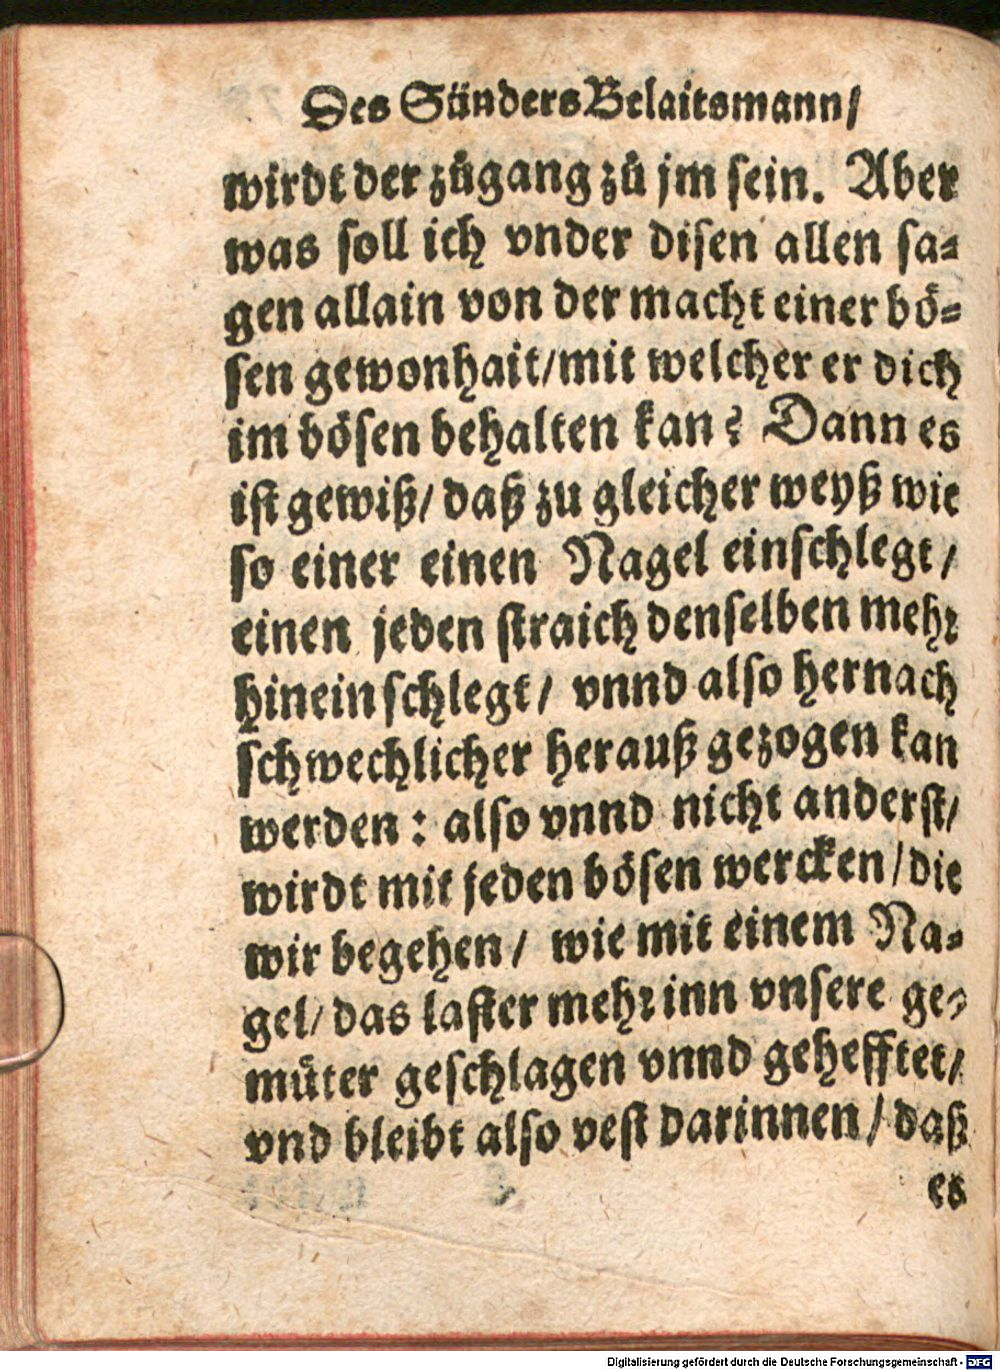 Des Sünders Belaitsmann/
wirdt der zůgang zů jm sein. Aber
was soll ich vnder disen allen sa⸗
gen allain von der macht einer bö⸗
sen gewonhait/mit welcher er dich
im bösen behalten kan? Dann es
ist gewiß/ daß zu gleicher weyß wie
so einer einen Nagel einschlegt/
einen jeden straich denselben mehr
hinein schlegt/ vnnd also hernach
schwechlicher herauß gezogen kan
werden: also vnnd nicht anderst/
wirdt mit jeden bösen wercken/die
wir begehen/ wie mit einem Na⸗
gel/ das laster mehr inn vnsere ge⸗
müter geschlagen vnnd gehefftet/
vnd bleibt also vest darinnen/ daß
es
Digitalisierung gefördert durch die Deutsche Forschungsgemeinschaft - DFG